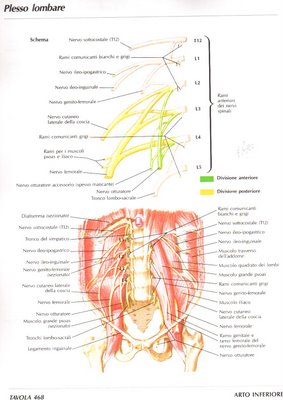 Plesso lombare
Schema
Nervo sottocostale (T12)
Rami comunicanti bianchi e grigi
Nervo ileo-ipogastrico
Nervo ileo-inguinale
Nervo genito-femorale
Nervo cutaneo
laterale della coscia
Rami comunicanti grigi
Rami per i muscoli
psoas e iliaco
Nervo femorale
Nervo otturatore accessorio (spesso mancante)
Nervo otturatore
Tronco lombo-sacrale
T12
L1
L2
L3
L4
L5
Rami
anteriori
dei nervi
spinali
Divisione anteriore
Divisione posteriore
Diaframma (sezionato)
Nervo sottocostale (T12)
Tronco del simpatico
Nervo ileo-ipogastrico
Nervo ileo-inguinale
Nervo genito-femorale
(sezionato)
Nervo cutaneo laterale
della coscia
Nervo femorale
Nervo otturatore
Muscolo grande psoas
(sezionato)
Tronchi lombo-sacrali
Legamento inguinale
Rami comunicanti
bianchi e grigi
Nervo sottocostale (T12)
Nervo ileo-ipogastrico
Nervo ileo-inguinale
Muscolo trasverso
dell'addome
Muscolo quadrato dei lombi
Muscolo grande psoas
Rami comunicanti grigi
Nervo genito-femorale
Muscolo iliaco
Nervo cutaneo laterale
della coscia
Nervo femorale
Ramo genitale e
ramo femorale del
nervo genito-femorale
Nervo otturatore
TAVOLA 468
ARTO INFERIORE